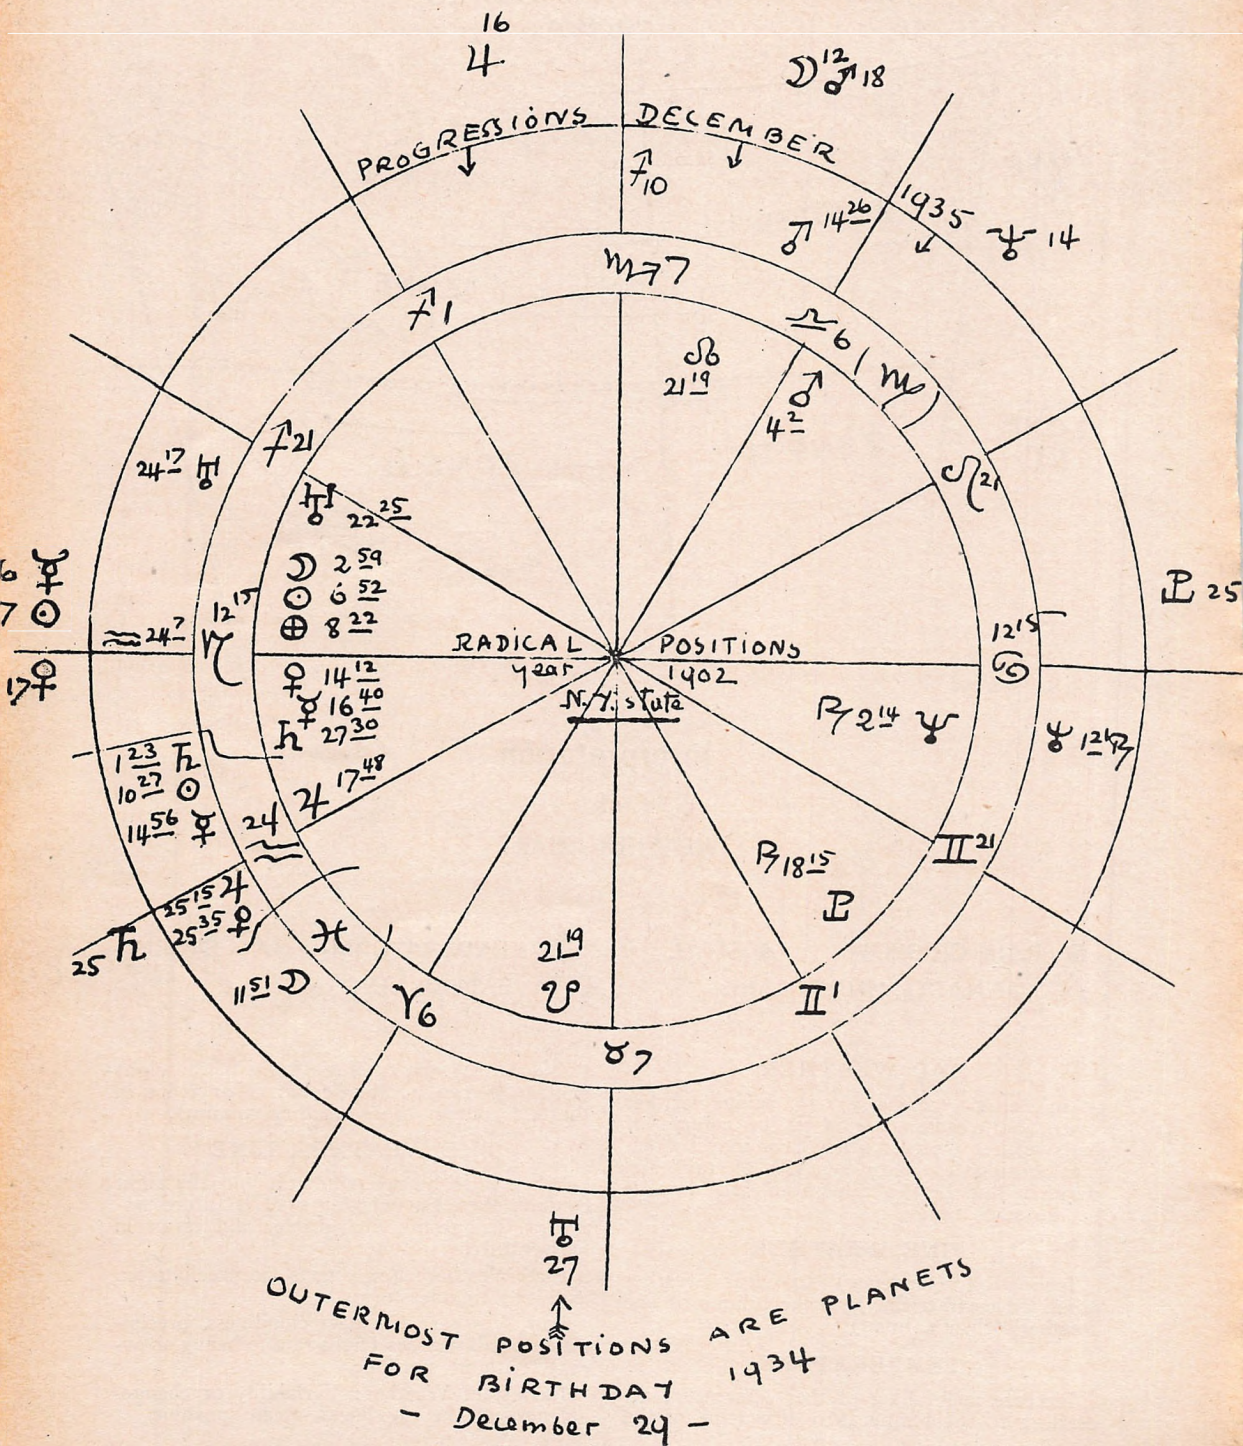 16
♃
☽ 12 ♂ 18
PROGRESSIONS DECEMBER 1935
↓ ↓ ↙
♐10
♂ 14 26
♆ 14
♏ 7
♐ 1
♎ 6 (♍)
☊
21 19
♂
4 2
♐ 21
♌ 21
24 17 ♅
♅ 22 25
☽ 2 59
☿
☉
⊕ 8 22
☉ 6 52
♇ 25
♒ 24 7
♑ 12 15
RADICAL POSITIONS
year 1902
N.Y. state
12 15
♋
17 ♀
♀ 14 12
☿ 16 40
♄ 27 30
℞ 2 14 ♆
♆ 1 21 ℞
1 23 ♄
10 27 ☉
14 56 ☿
♃ 17 48
24
♒
♊ 21
℞ 18 15
♇
25 15 ♃
25 35 ♀
25 ♄
♓
11 51 ☽
21 19
☋
♈ 6
♊ 1
♉ 7
♅
27
↑
OUTERMOST POSITIONS ARE PLANETS
FOR BIRTHDAY 1934
- December 29 -